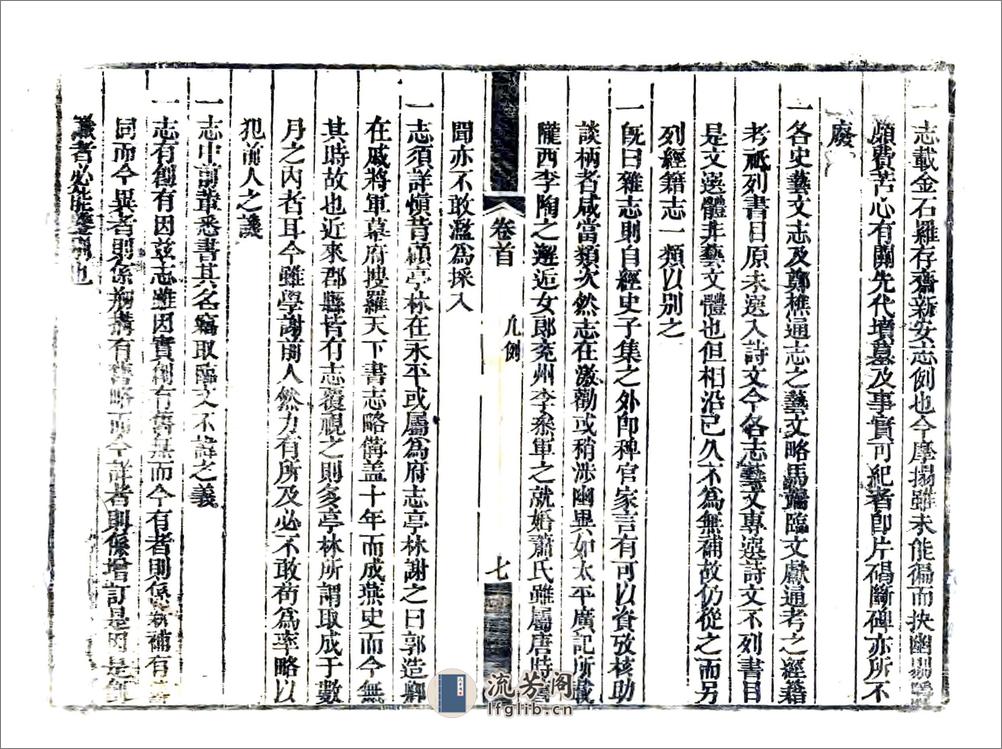 一志載金石羅存齋新安志例也今摩搨雖未能徧而抉幽剔
頗費苦心有關先代墳墓及事實可紀者即片碣斷碑亦所不
廢
一各史藝文志及鄭樵通志之藝文略馬端臨文獻通考之經籍
考祗列書目原未選入詩文今各志藝文專選詩文不列書目
是文選體非藝文體也但相沿已久不為無補故仍從之而另
列經籍志一類以別之
一既曰雜志則自經史子集之外即稗官家言有可以資攷核助
談柄者咸當類次然志在激勸或稍涉幽異如太平廣記所載
隴西李陶之邂近女郎兖州李叅軍之就婚蕭氏雖屬唐時
卷首
凡例
七
聞亦不敢濫為採入
一志須詳愼昔顧亭林在永平或屬為府志亭林謝之曰郭造卿
在戚將軍幕府搜羅天下書志略備盖十年而成燕史而今無
其時故也近來郡縣皆有志覆視之則多亭林所謂取成于數
月之內者耳今雖學謝前人然力有所及必不敢苟為率略以
犯前人之譏
一志中前輩悉書其名竊取臨文不諱之義
一志有創有因兹志雖因實創有舊無而今有者則係新補有
同而今異者則係有舊略而今詳者則係增訂是因是創
識者必能鑒別也
流芳閣
lfglib.cn